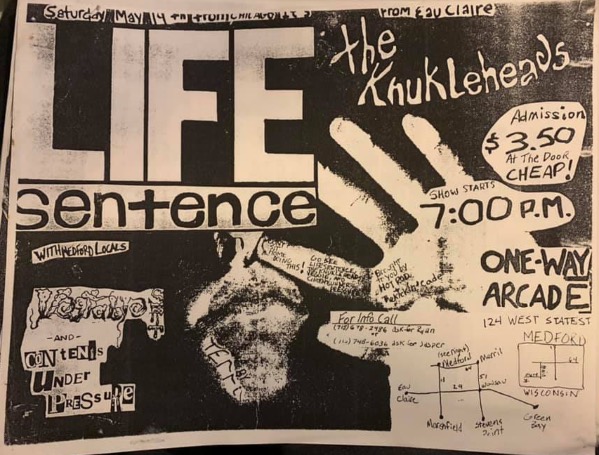 Saturday May 14th from CHICAGO
LIFE
sentence
from Eau Claire
the
Knukleheads
Admission
$3.50
At The Door
CHEAP!
SHOW STARTS
7:00 P.M.
ONE-WAY
ARCADE
124 WEST STATE ST
WITH MEDFORD LOCALS
-AND-
CONTENTS
UNDER
PRESSURE
GO SEE
Brought
to you by
For Info Call
Ask for Ryan
or
Ask for Jasper
MEDFORD
64
WISCONSIN
Medford
Merill
64
51
Wausau
29
Eau
Claire
Marshfield
Stevens
Point
Green
Bay